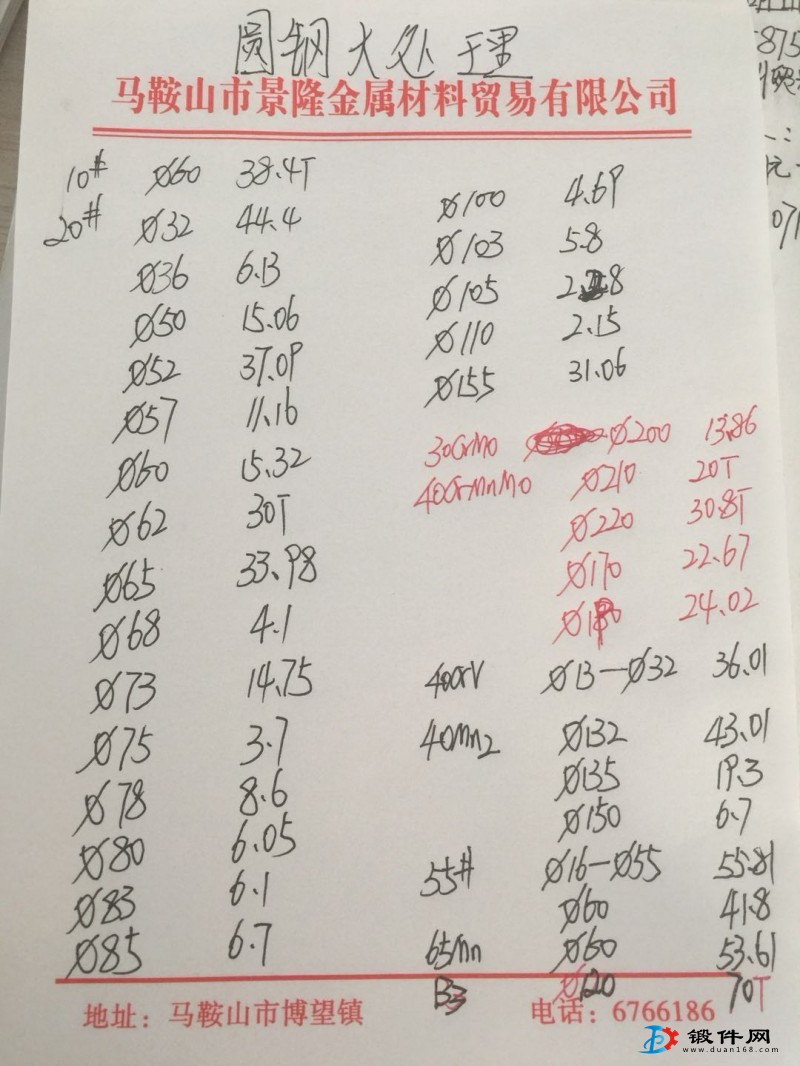 圆钢大处理
马鞍山市景隆金属材料贸易有限公司
10# Ø60 38.4T
20# Ø32 44.4
Ø36 6.13
Ø50 15.06
Ø52 37.09
Ø57 11.16
Ø60 15.32
Ø62 30T
Ø65 33.98
Ø68 4.1
Ø73 14.75
Ø75 3.7
Ø78 8.6
Ø80 6.05
Ø83 6.1
Ø85 6.7
Ø100 4.69
Ø103 5.8
Ø105
Ø110 2.15
Ø155 31.06
30CrMo Ø200 13.86
40CrMnMo Ø210 20T
Ø220 30.8T
Ø170 22.67
24.02
40CrV Ø13—Ø32 36.01
40Mn2 Ø132 43.01
Ø135 19.3
Ø150 6.7
55# Ø16—Ø55 55.81
Ø60 41.8
65Mn Ø60 53.61
B3 Ø120 70T
地址：马鞍山市博望镇 电话：6766186
锻件网
www.duan168.com